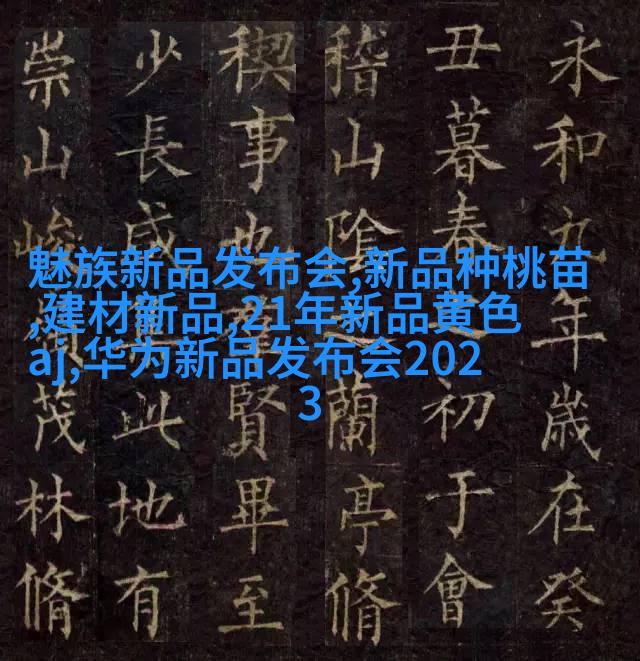 永和九年歲在癸
丑暮春初于會
稽山陰蘭亭脩
禊事也賢畢至
少長咸此地有
崇山峻茂林脩
魅族新品发布会,新品种桃苗
,建材新品,21年新品黄色
aj,华为新品发布会202
3